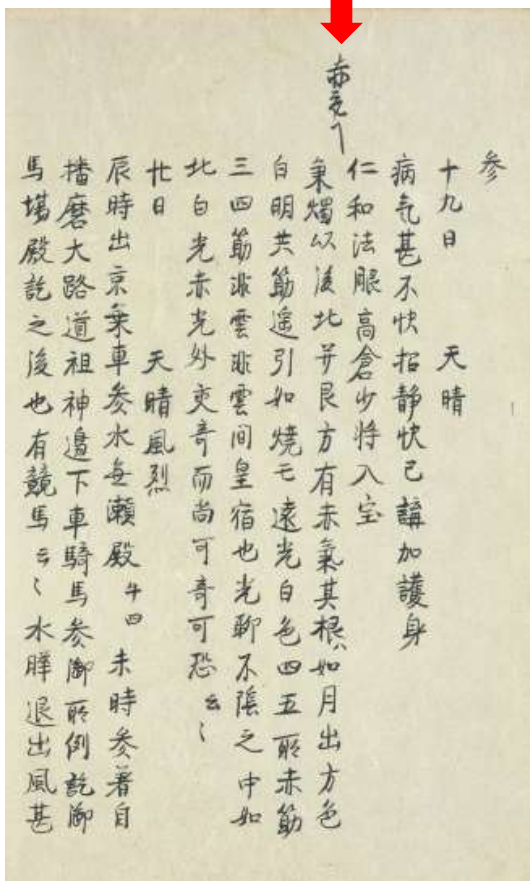 参
十九日 天晴
病気甚不快招静快已講加護身
仁和法眼高倉少将入室
赤気ヿ
秉燭以後北并艮方有赤氣其根ハ如月出方色
白明其筋遥引如焼亡遠光白色四五所赤筋
三四筋非雲非雲間星宿也光聊不陰之中如
此白光赤光外交奇而尚可奇可恐云々
廿日 天晴風烈
辰時出京乗車参水無瀬殿 午四 未時参着自
播磨大路道祖神邊下車騎馬参御所例訖御
馬場殿訖之後也有競馬云々 水 退出風甚